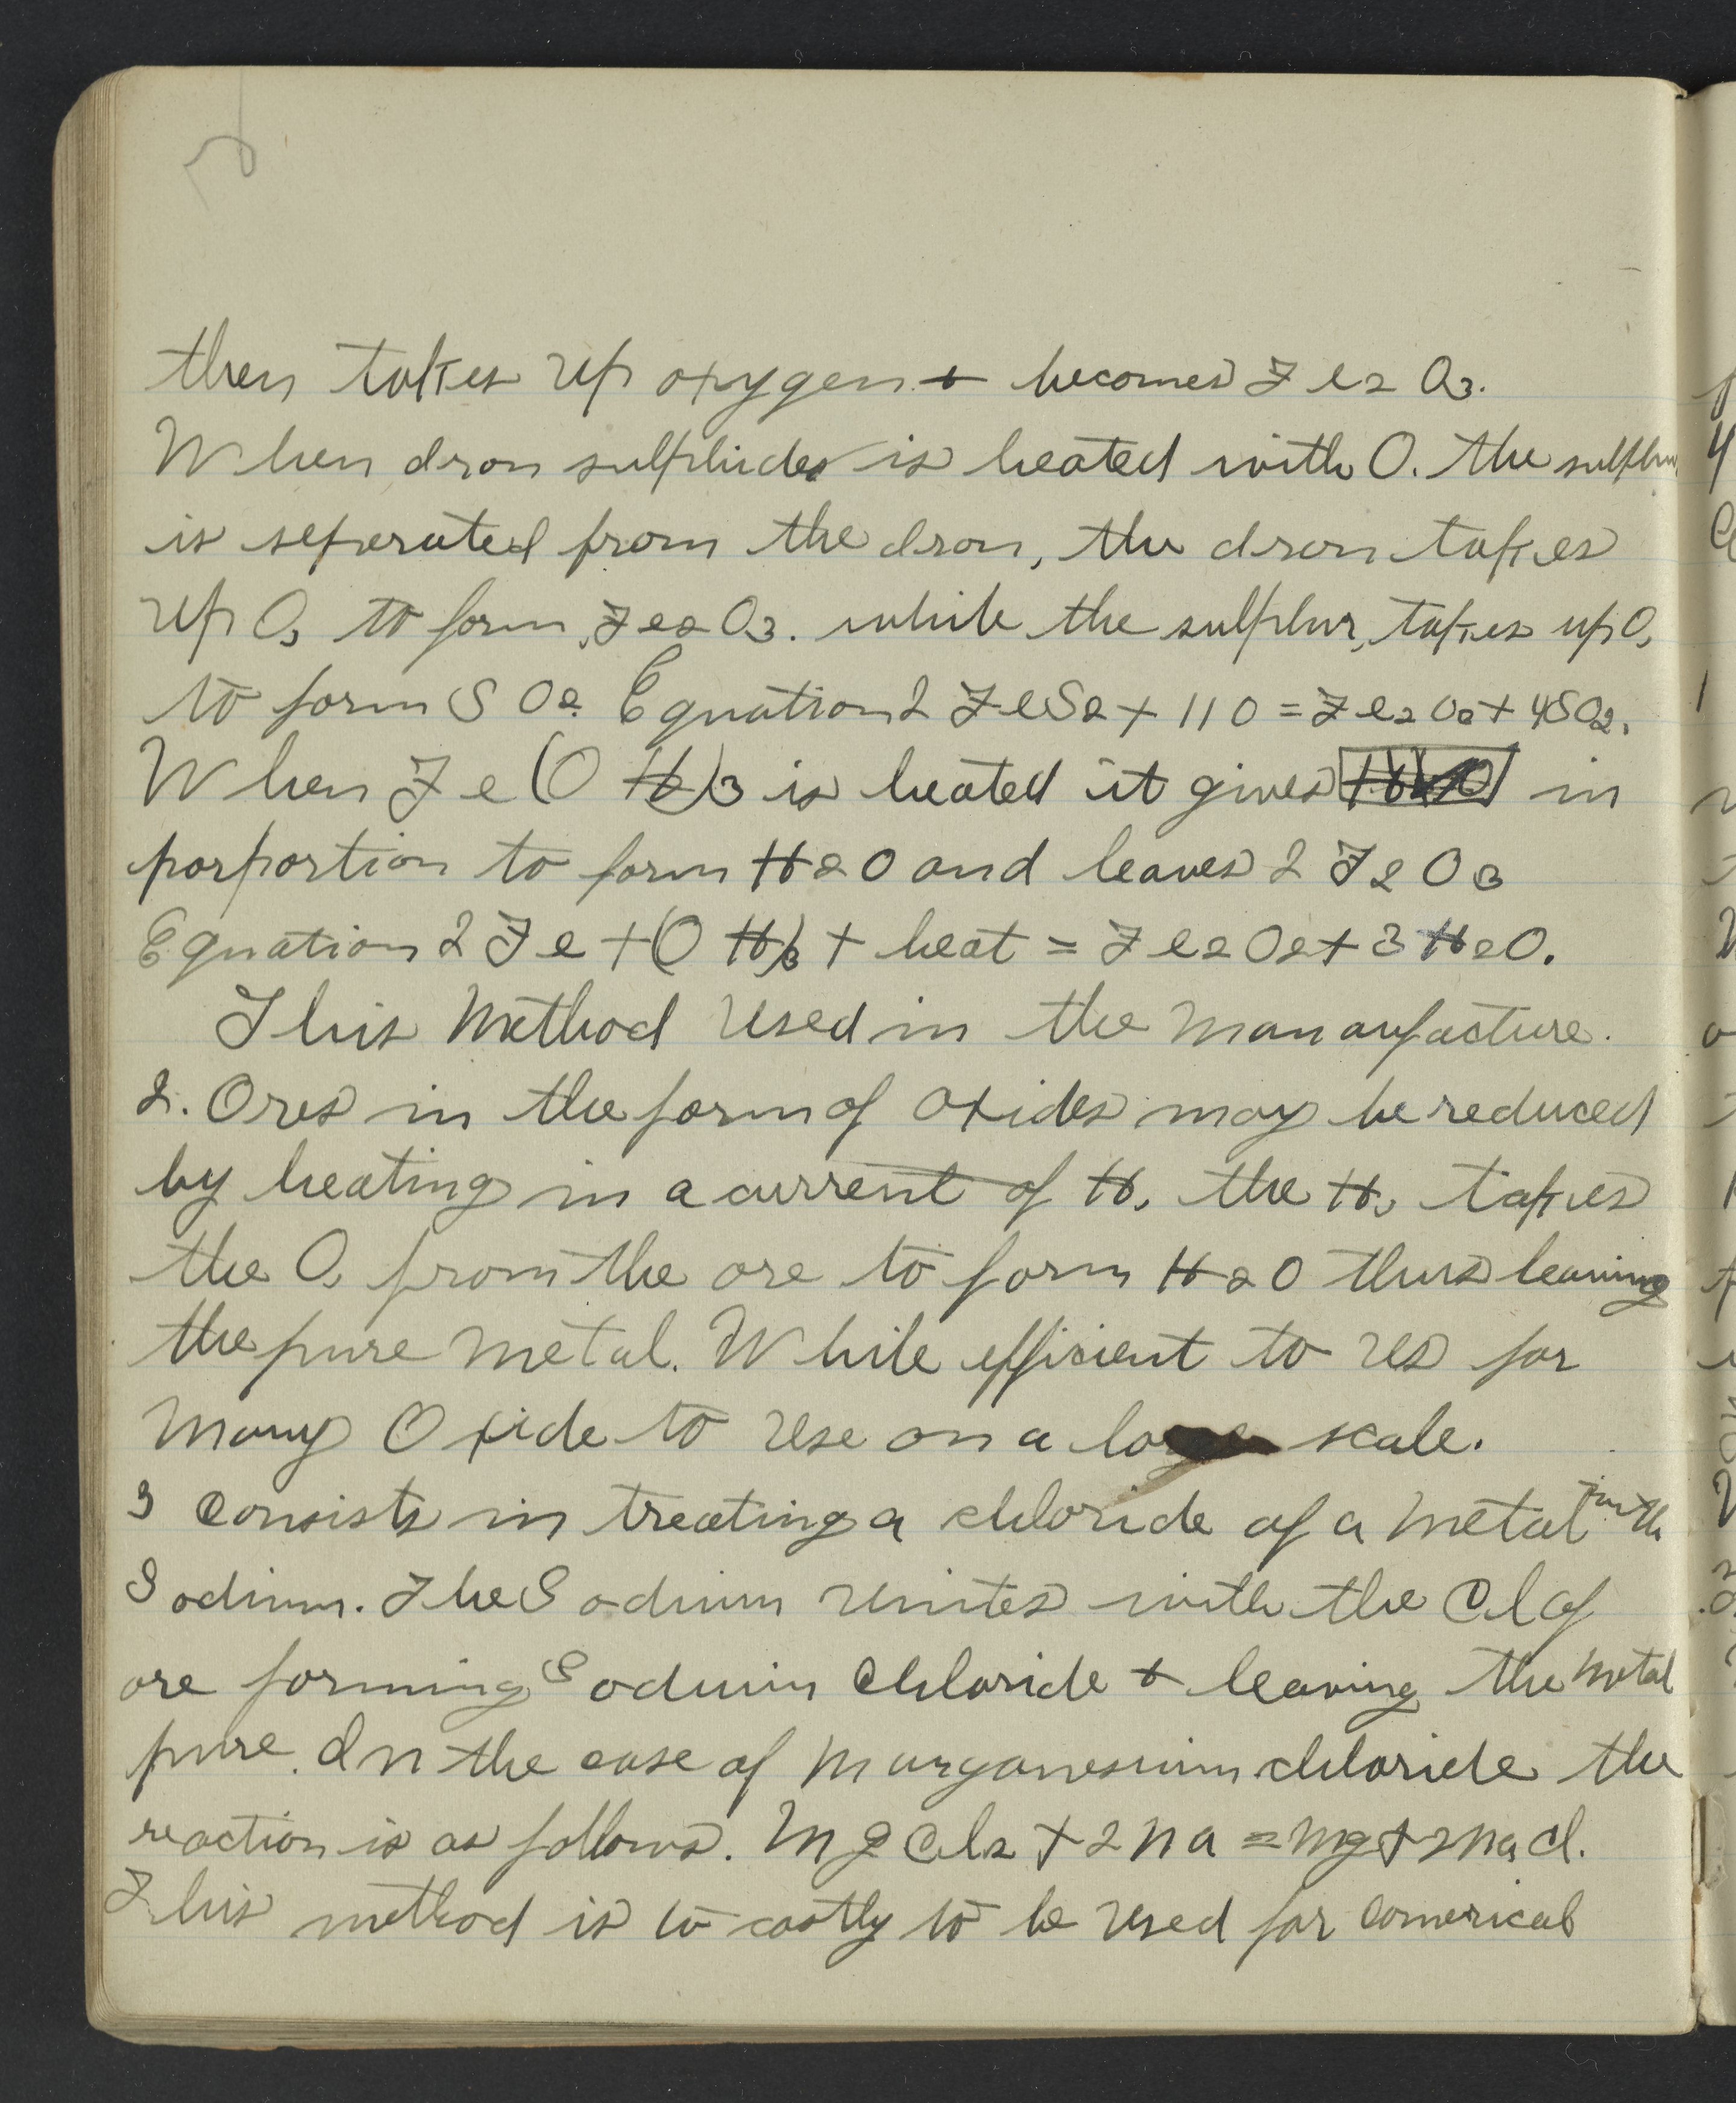 then takes up oxygen + becomes Fe2 O3.
When Iron sulphides is heated with O. the sulphur
is seperated from the Iron, the Iron takes
up O, to form, Fe2 O3. while the sulphur, takes up O,
to form S O2. Equation 2 FeS2 + 11 O = Fe2 O2 + 4SO2.
When Fe (O H)3 is heated it gives in
porportion to form H2O and leaves 2 F2 O3
Equation 2 Fe + (O H)3 + heat = Fe2O2 + 3 H2O.
This Method used in the Manaufacture.
2. Ores in the form of Oxides may be reduced
by heating in a current of H. the H, takes
the O, from the ore to form H2O thus leaving
the pure Metal. While efficient to us for
Many Oxide to use on a scale.
3 Consists in treating a chloride of a Metal with
Sodium. The Sodium unites with the Cl of
ore forming Sodium Chloride + leaving the Metal
pure. In the case of Marganesium chloride the
reaction is as follows. Mg Cl2 + 2 Na = Mg + 2 Na Cl.
This method is to costly to be used for comerical